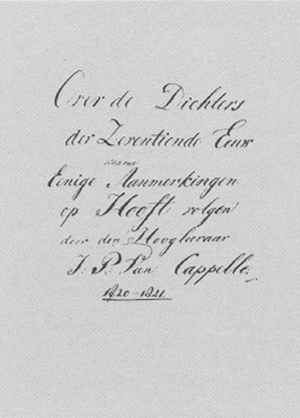 Over de Dichters
der Zeventiende Eeuw
waarna
Eenige Aanmerkingen
op Hooft volgen
door den Hoogleeraar
J. P. Van Cappelle.
1820-1821.